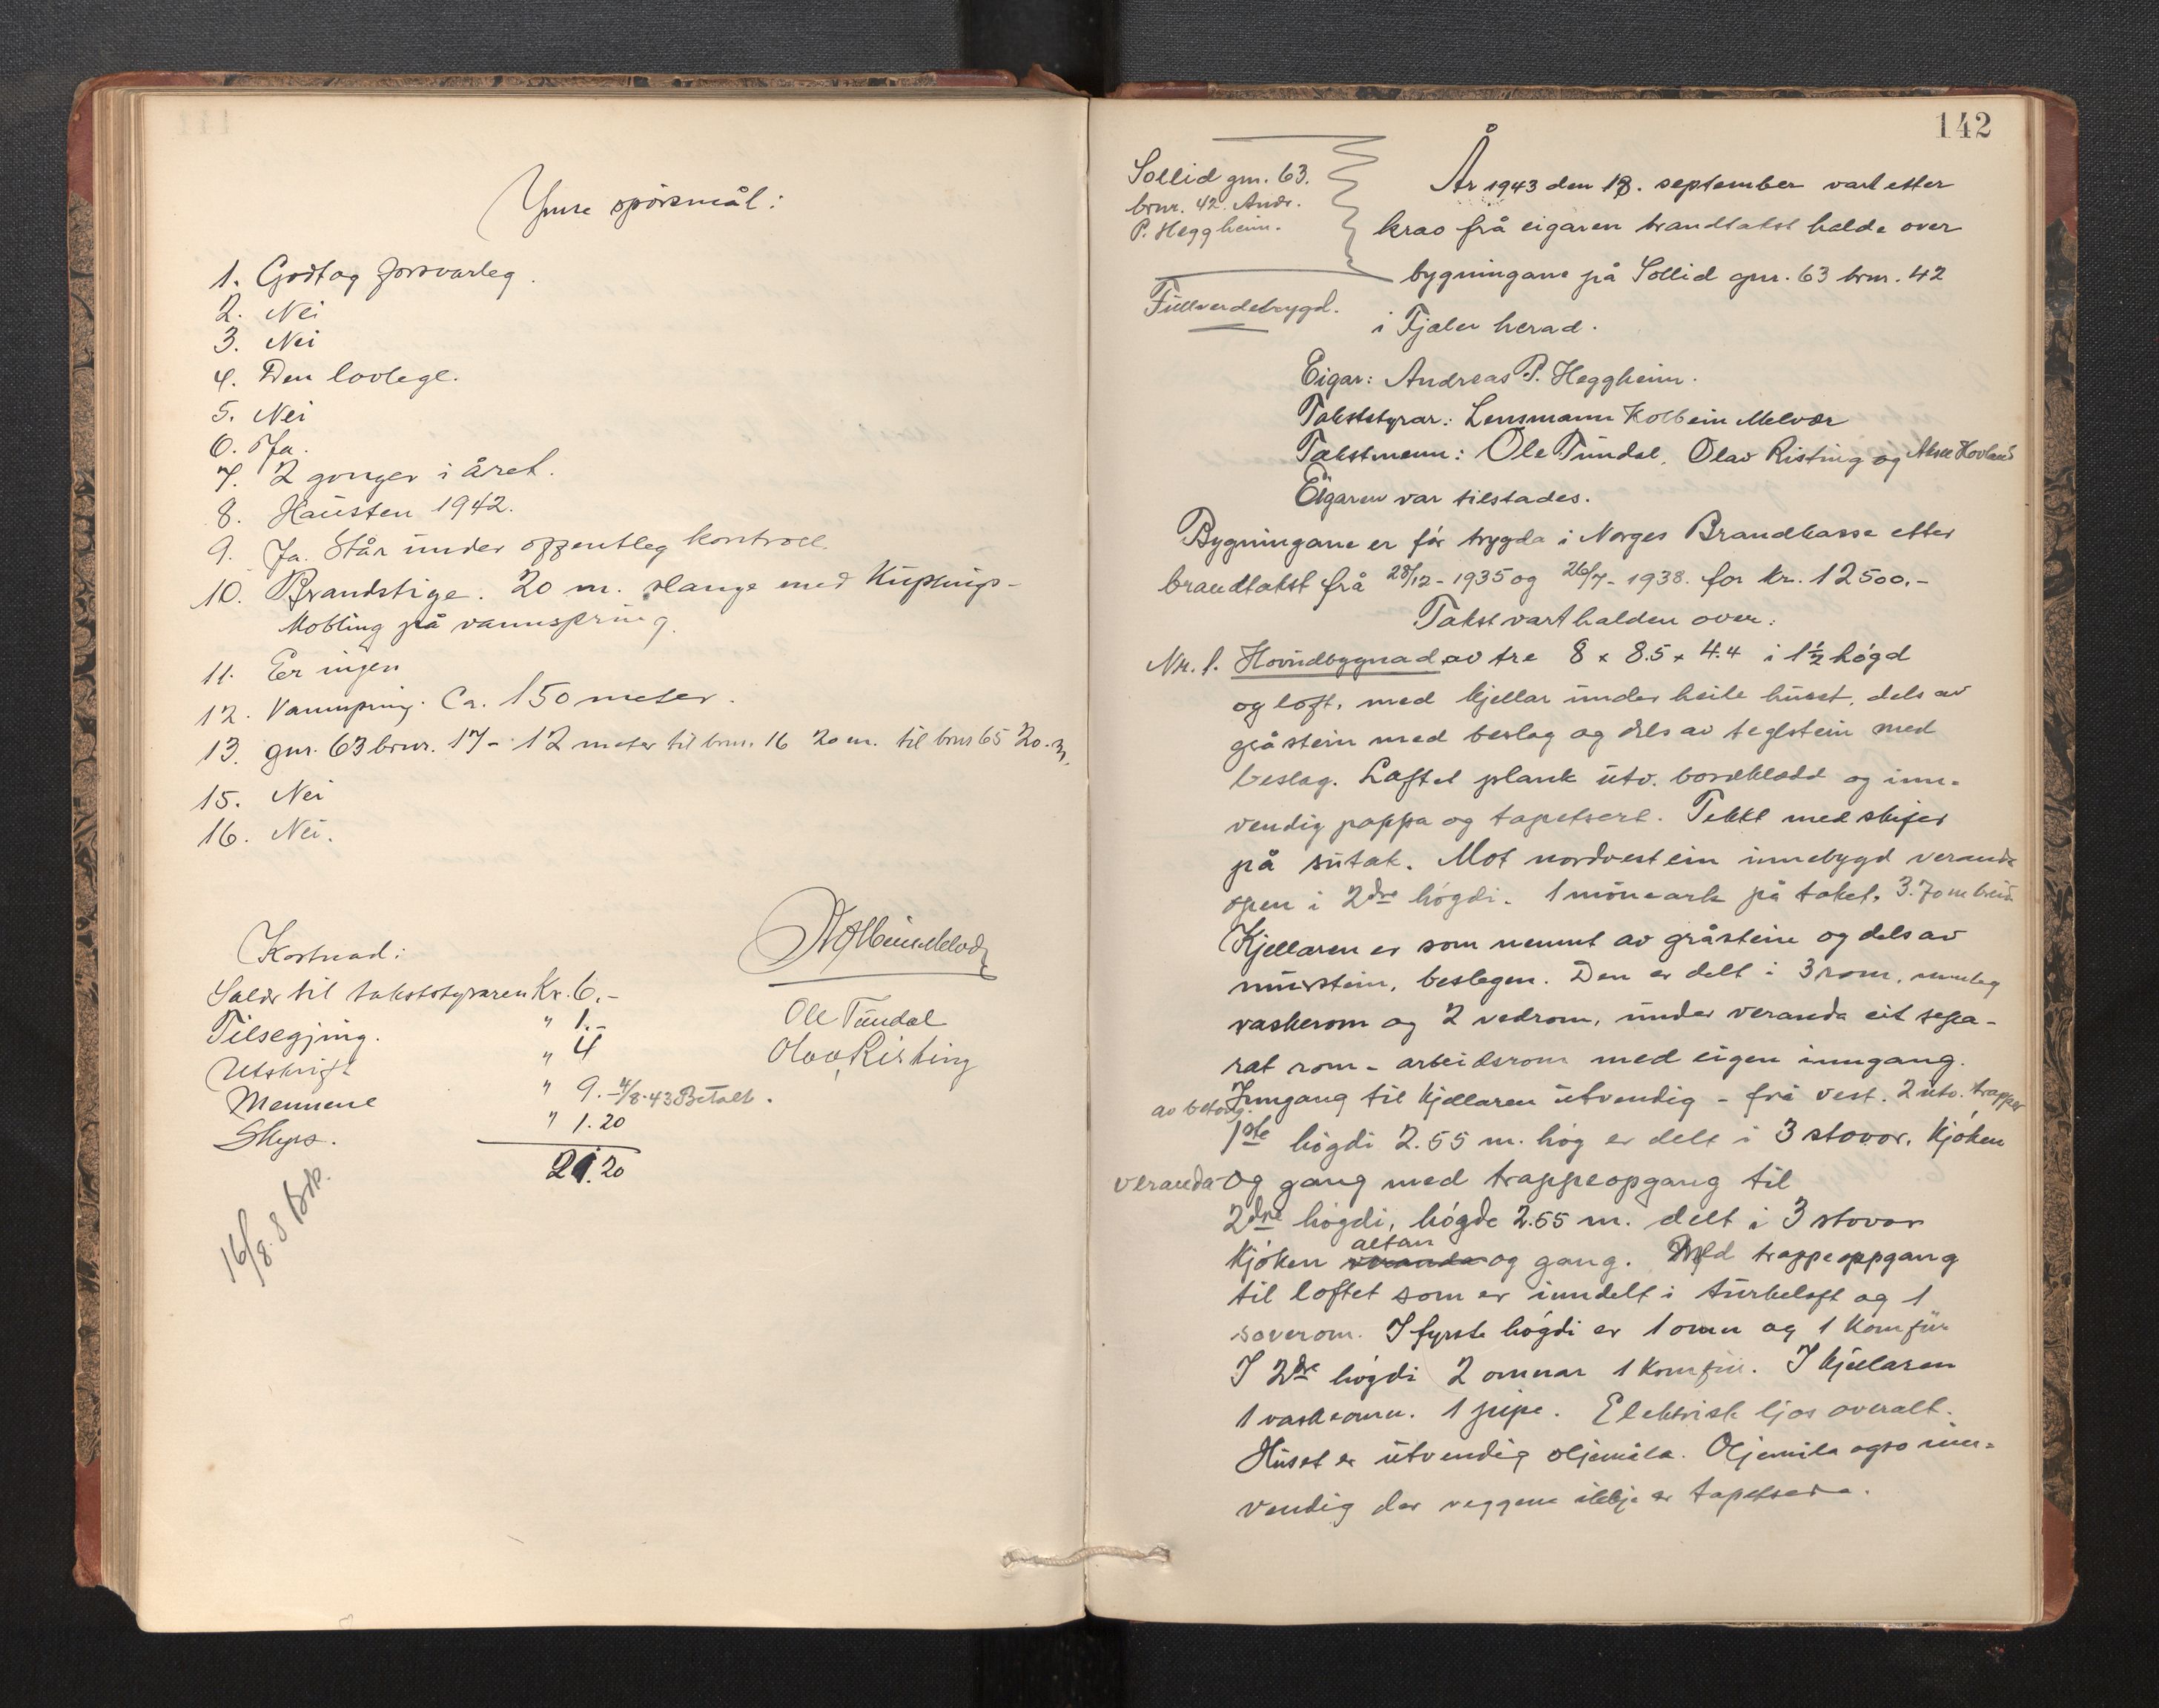 Ymse spörsmål:
1. Godt og forsvarleg.
2. Nei
3. Nei
4. Den lovlege.
5. Nei
6. Ja.
7. 2 gonger i året.
8. Hausten 1942.
9. Ja. Står under offentleg kontroll.
10. Brandstige. 20 m. slange med
Kobling på vannspring.
11. Er ingen
12. Vannspring. Ca. 150 meter.
13. gnr. 63 bnr. 17 - 12 meter til bnr. 16 20 m. til bnr 65 20 m.
15. Nei
16. Nei.
Kostnad:
Salær til takststyraren Kr. 6.-
Tilsegjing. " 1.-
Utskrift " 4
Mennene " 9.- 4/8-43 Betalt.
Skyss. " 1.20
21.20
16/8. 8
Kolbein Melvær
Ole Tundal
Olav Risting
142
Sollid gnr. 63.
bnr. 42. Andr.
P. Heggheim.
Fullverdebrygd.
År 1943 den 18. september vart etter
krav frå eigaren brandtakst halde over
bygningane på Sollid gnr. 63 bnr. 42
i Fjaler herad.
Eigar: Andreas P. Heggheim.
Takststyrar: Lensmann Kolbein Melvær
Takstmenn: Ole Tundal, Olav Risting og Hovland
Eigaren var tilstades.
Bygningane er før trygda i Norges Brandkasse etter
brandtakst frå 28/12-1935 og 26/7-1938. for kr. 12500.-
Takst vart halden over:
Nr. 1. Hovudbygnad av tre 8 x 8.5 x 4.4 i 1½ høgd
og loft, med kjellar under heile huset, dels av
gråstein med beslag og dels av teglstein med
beslag. Laftet plank utv. bordklædd og inn-
vendig pappa og tapetsert. Tekkt med skifer
på sutak. Mot nordvest ein innebygd veranda
open i 2dre högdi. 1 möneark på taket. 3.70 m breid
Kjellaren er som nemnt av gråstein og dels av
murstein, beslegen. Den er delt i 3 rom, nemleg
vaskerom og 2 vedrom, under veranda eit sepa-
rat rom - arbeidsrom med eigen inngang.
Inngang til kjellaren utvendig - frå vest. 2 utv. trapper
av betong.
1ste högdi 2.55 m. hög er delt i 3 stovor, kjöken
veranda og gang med trappeopgang til
2dre högdi, högde 2.55 m. delt i 3 stovor
altan
kjöken veranda og gang. Med trappeoppgang
til loftet som er inndelt i turkeloft og 1
soverom. I fyrste högdi er 1 omn og 1 komfür
I 2dre högdi 2 omnar 1 komfür. I kjellaren
1 vaskeomn. 1 pipe. Elektrisk ljos overalt.
Huset er utvendig oljemåla. Oljemåla ogso inn-
vendig der veggene ikkje er tapetsera.